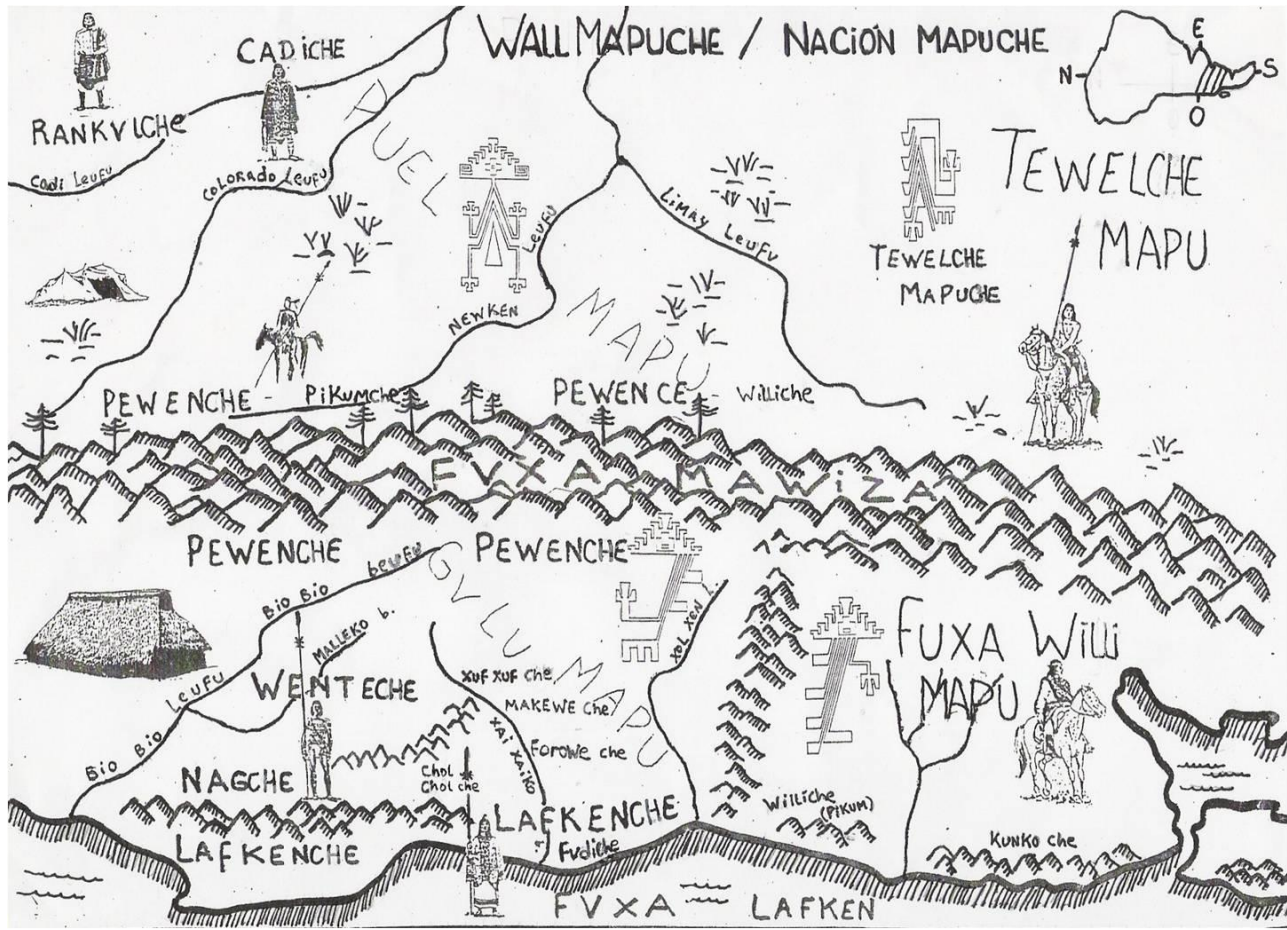 WALLMAPUCHE / NACIÓN MAPUCHE
E
N
S
O
CADICHE
RANKVLCHE
Cadi Leufu
COLORADO Leufu
PUEL
MAPU
NEWKEN LEUFU
LiMAY LeuFu
TEWELCHE
MAPUCHE
TEWELCHE
MAPU
PEWENCHE - PiKUMChe
PEWENCE - Williche
FVXA MAWiZA
PEWENCHE
PEWENCHE
GVLU MAPU
BiO BiO LeUFU
BiO BiO LeUFU
MALLEKO b.
WENTECHE
XUF XUF che
MAKEWE Che
FOROWE che
XAi XAiKO
XOL XEN
NAGCHE
Chol
Chol che
LAFKENCHE
LAFKENCHE
Fvdiche
Williche
(PiKUM)
FUXA Willi
MAPU
KUNKO che
FVXA LAFKEN